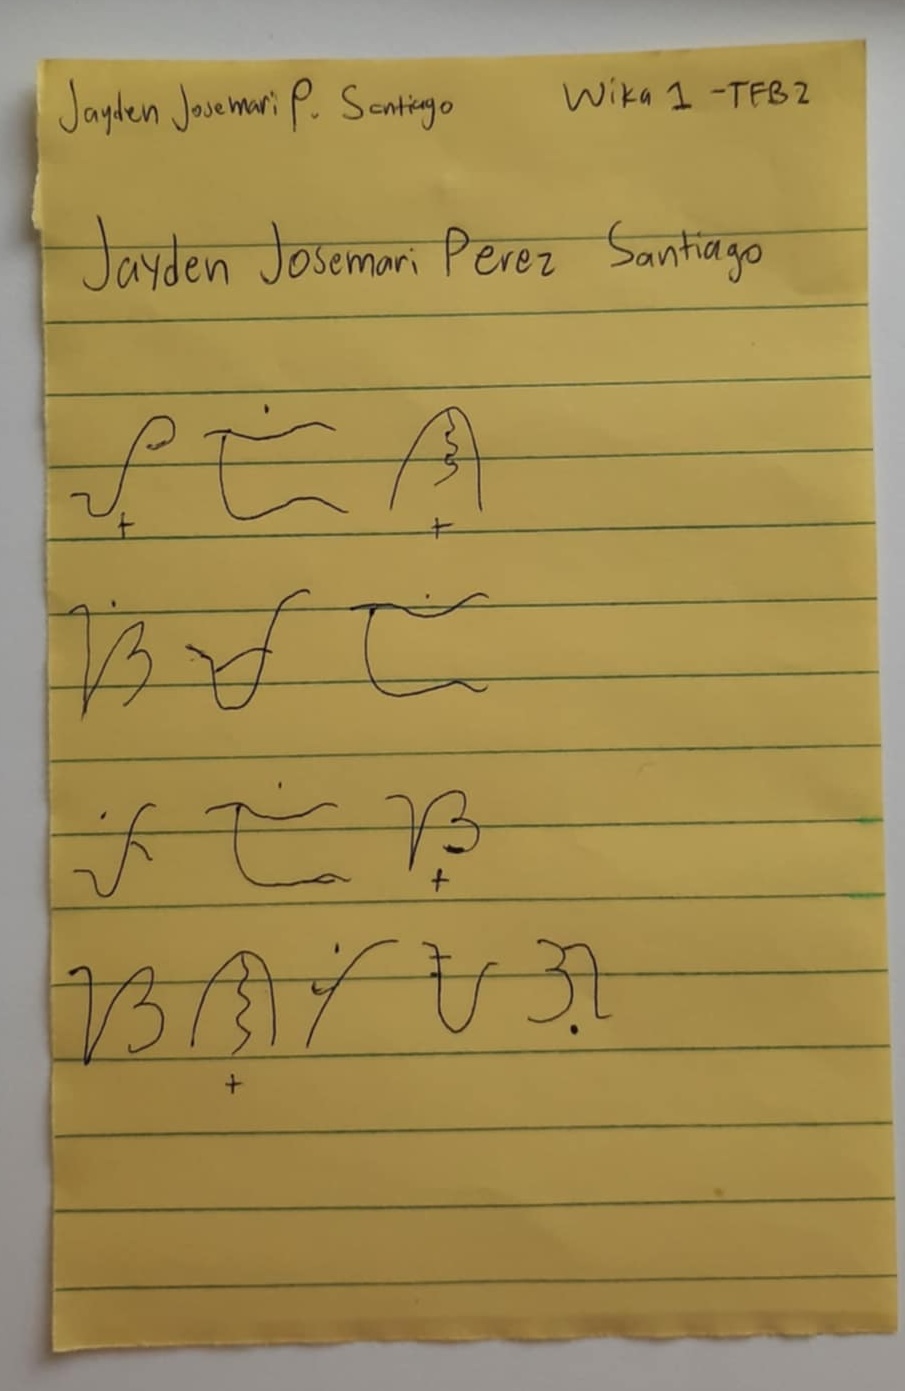 Jayden Josemari P. Santiago Wika 1 - TFB2
Jayden Josemari Perez Santiago
ᜌ᜔ᜇᜒᜈ᜔
ᜐᜒᜋᜇᜒ
ᜉᜒᜇᜒᜐ᜔
ᜐᜈ᜔ᜆᜒᜀᜄᜓ